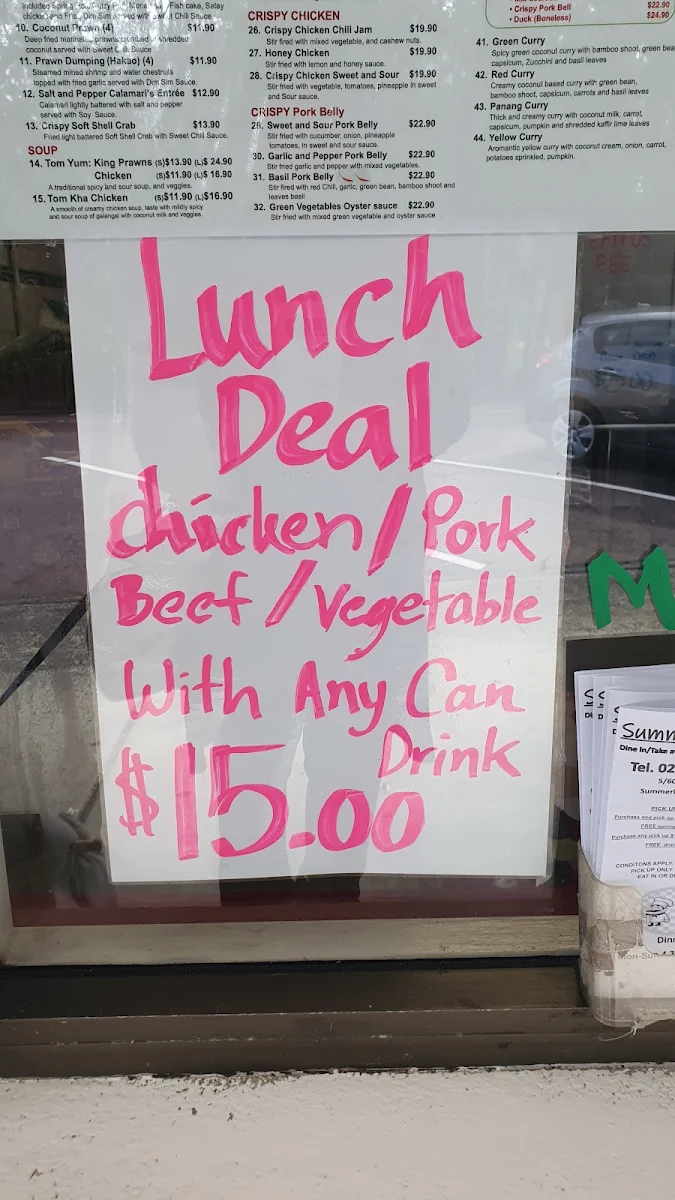 10. Coconut Prawn (4) $11.90
coconut served with Sweet Chili Sauce
11. Prawn Dumping (Hakao) (4) $11.90
Steamed mixed shrimp and water chestnuts
topped with fried garlic served with Dim Sim Sauce.
12. Salt and Pepper Calamari's Entrée $12.90
Calamari lightly battered with salt and pepper
served with Soy Sauce.
13. Crispy Soft Shell Crab $13.90
Fried light battered Soft Shell Crab with Sweet Chili Sauce.
SOUP
14. Tom Yum: King Prawns (S)$13.90 (L)$ 24.90
Chicken (S)$11.90 (L)$ 16.90
A traditional spicy and sour soup, and veggies.
15. Tom Kha Chicken (S)$11.90 (L)$16.90
A smooth of creamy chicken soup, taste with mildly spicy
and sour soup of galangal with coconut milk and veggies.
CRISPY CHICKEN
26. Crispy Chicken Chili Jam $19.90
Stir fried with mixed vegetable, and cashew nuts.
27. Honey Chicken $19.90
Stir fried with lemon and honey sauce.
28. Crispy Chicken Sweet and Sour $19.90
Stir fried with vegetable, tomatoes, pineapple in sweet
and Sour sauce.
CRISPY Pork Belly
29. Sweet and Sour Pork Belly $22.90
Stir fried with cucumber, onion, pineapple
tomatoes, in sweet and sour sauce.
30. Garlic and Pepper Pork Belly $22.90
Stir fried garlic and pepper with mixed vegetables.
31. Basil Pork Belly $22.90
Stir fired with red Chili, garlic, green bean, bamboo shoot and
leaves basil
32. Green Vegetables Oyster sauce $22.90
Stir fried with mixed green vegetable and oyster sauce
• Crispy Pork Bell $22.90
• Duck (Boneless) $24.90
41. Green Curry
Spicy green coconut curry with bamboo shoot, green bea
capsicum, Zucchini and basil leaves
42. Red Curry
Creamy coconut based curry with green bean,
bamboo shoot, capsicum, carrots and basil leaves
43. Panang Curry
Thick and creamy curry with coconut milk, carrot,
capsicum, pumpkin and shredded kaffir lime leaves
44. Yellow Curry
Aromantic yellow curry with coconut cream, onion, carrot,
potatoes sprinkled, pumpkin.
Lunch
Deal
chicken/Pork
Beef/Vegetable
With Any Can
Drink
$15.00
M
Summ
Dine In/Take a
Tel. 02
5/60
Summerl
PICK U
Purchase and pick up
FREE spring
Purchase any pick up $
FREE
CONDITONS APPLY:
PICK UP ONLY
EAT IN OR D
Dinn
Mon-Sun